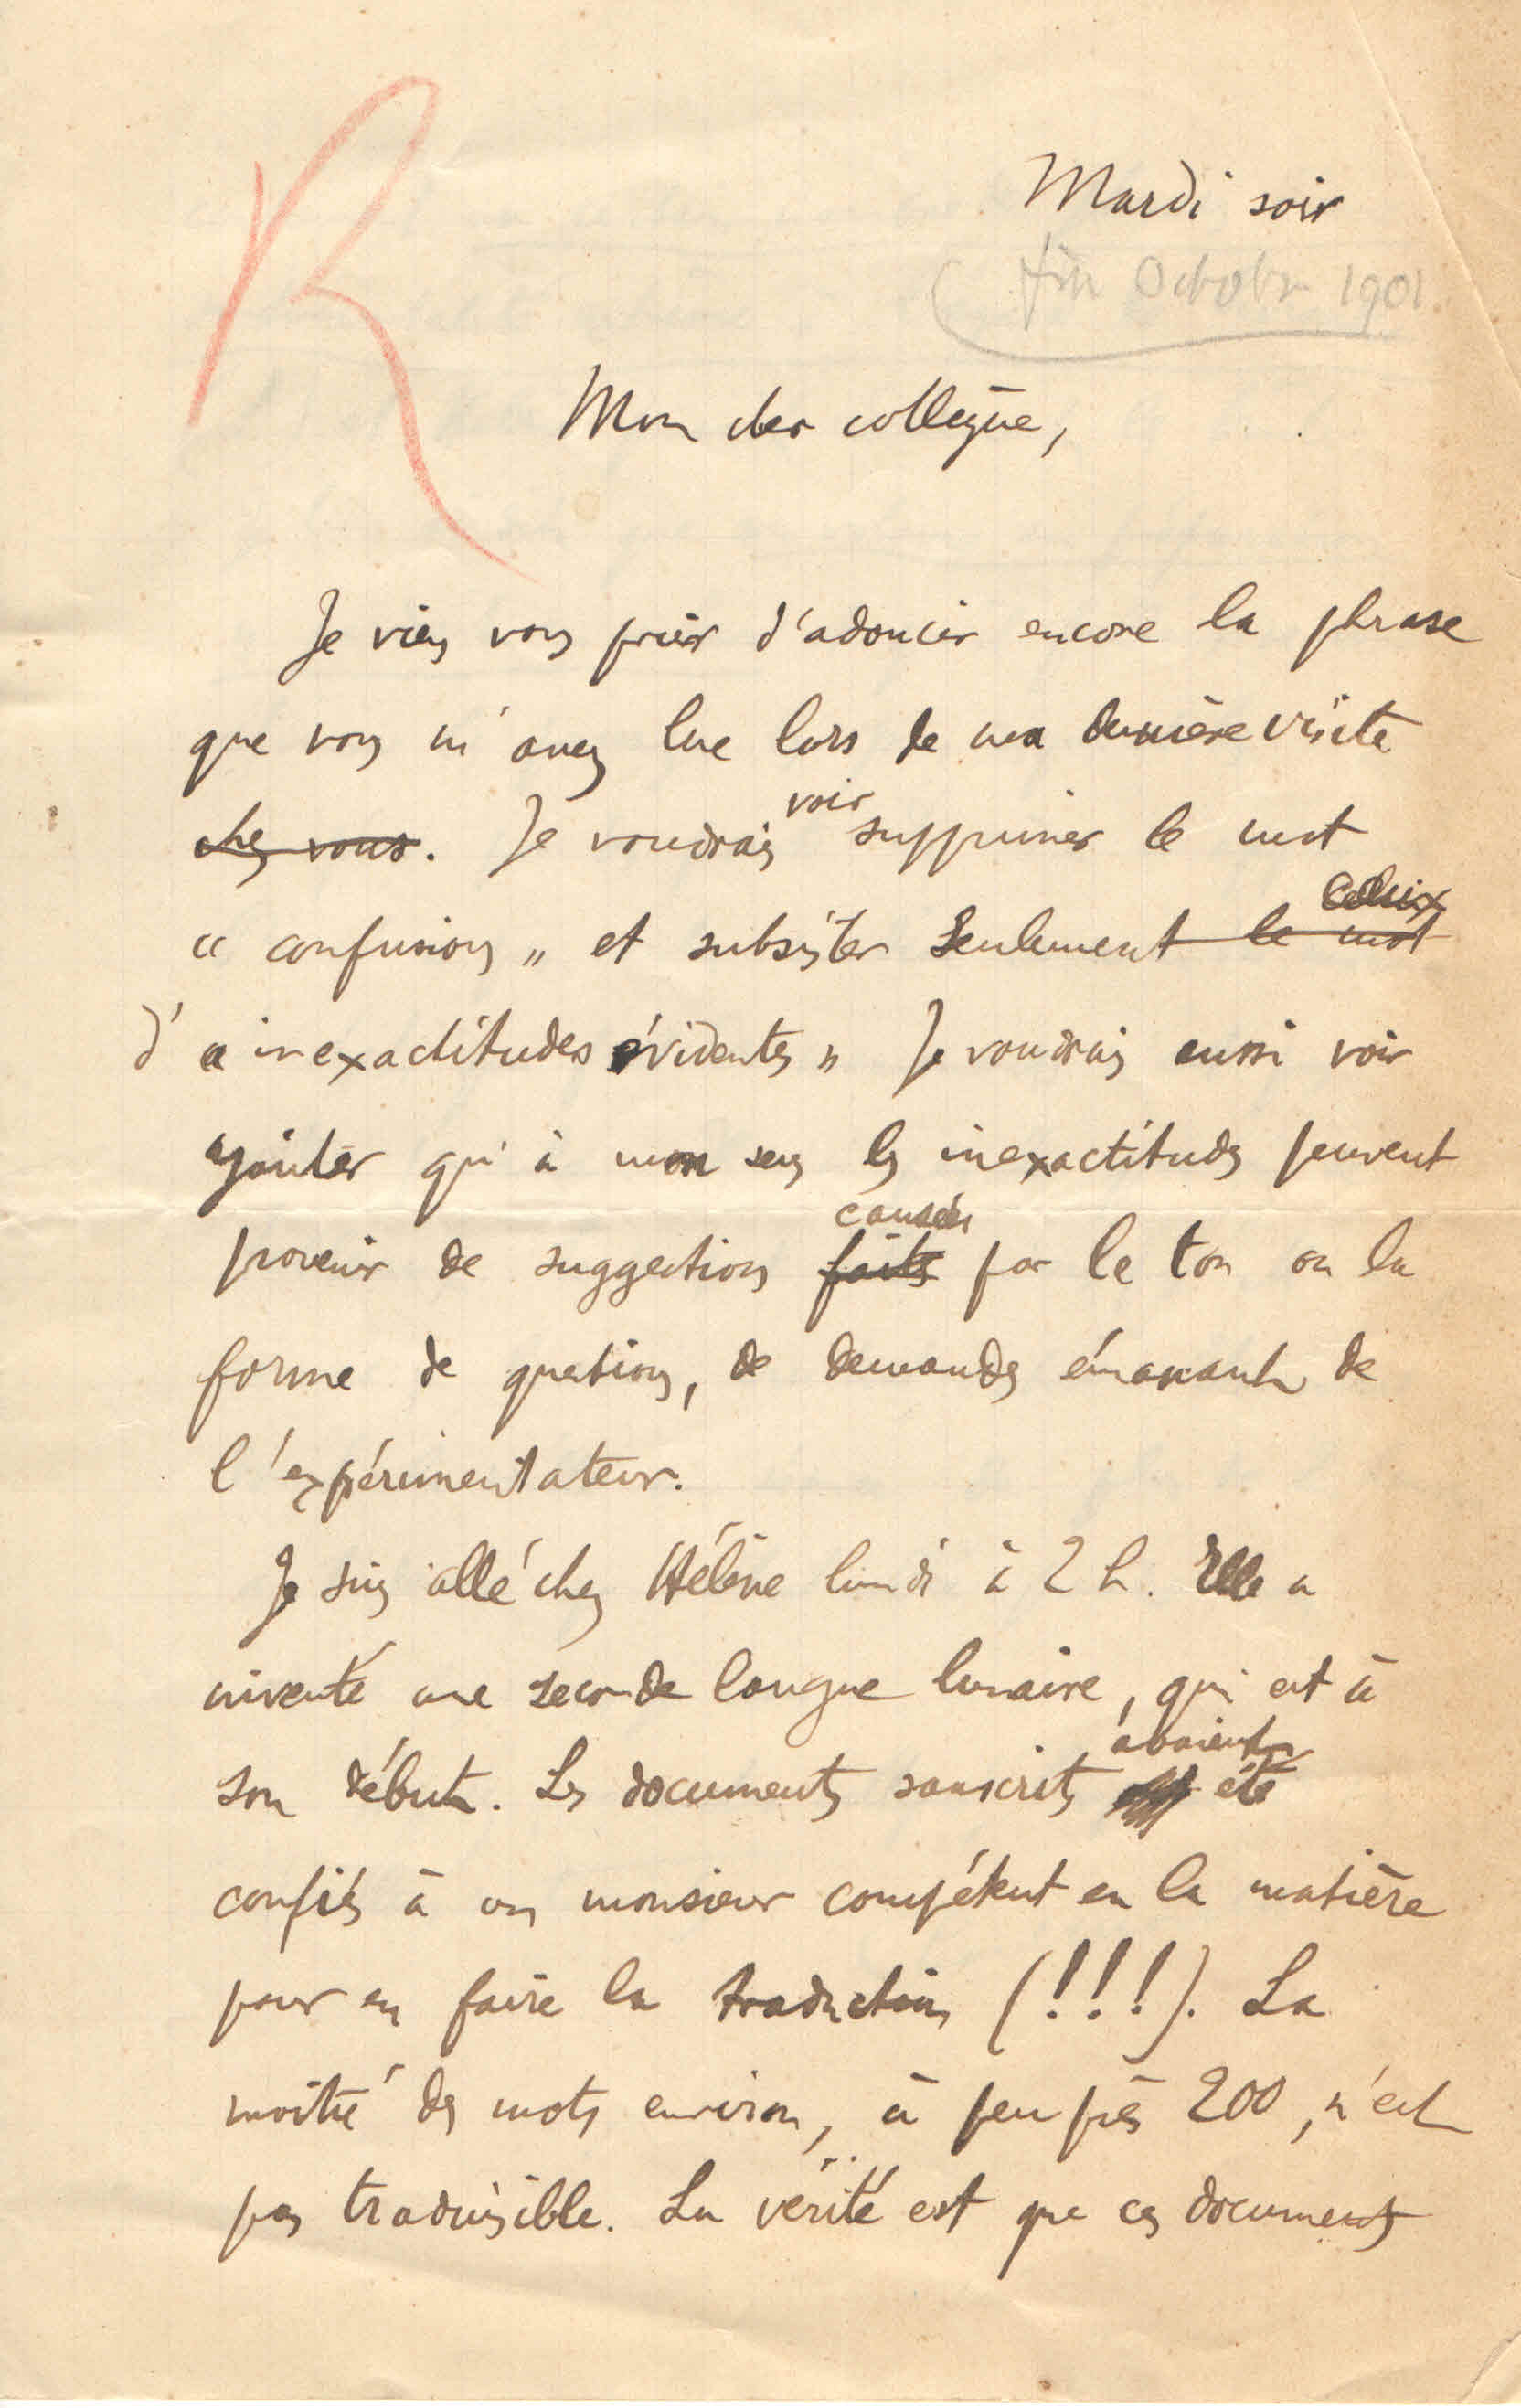 R
Mardi soir
(fin Octobre 1901
Mon cher collègue,
Je viens vous prier d'adoucir encore la phrase
que vous m'avez lue lors de ma dernière visite
chez vous. Je voudrais voir supprimer le mot
« confusions » et subsister seulement le mot celui
d'« inexactitudes évidentes » Je voudrais aussi voir
ajouter qu'à mon sens les inexactitudes peuvent
provenir de suggestions faites causées par le ton ou la
forme de questions, de demandes émanant de
l'expérimentateur.
Je suis allé chez Hélène lundi à 2 h. Elle a
inventé une seconde langue lunaire, qui est à
son début. Les documents sanscrits avaient été
confiés à un monsieur compétent en la matière
pour en faire la traduction (!!!). La
moitié des mots environ, à peu près 200, n'est
pas traduisible. La vérité est que ces documents